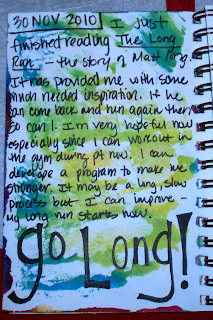 30 NOV 2010 I Just
finished reading The Long
Run - the story of Matt Long.
It has provided me with some
much needed inspiration. If he
can come back and run again then
so can I. I'm very hopeful now
especially since I can workout in
the gym during pt now. I can
develope a program to make me
stronger. It may be a long, slow
process but I can improve -
my long run starts now.
go Long!